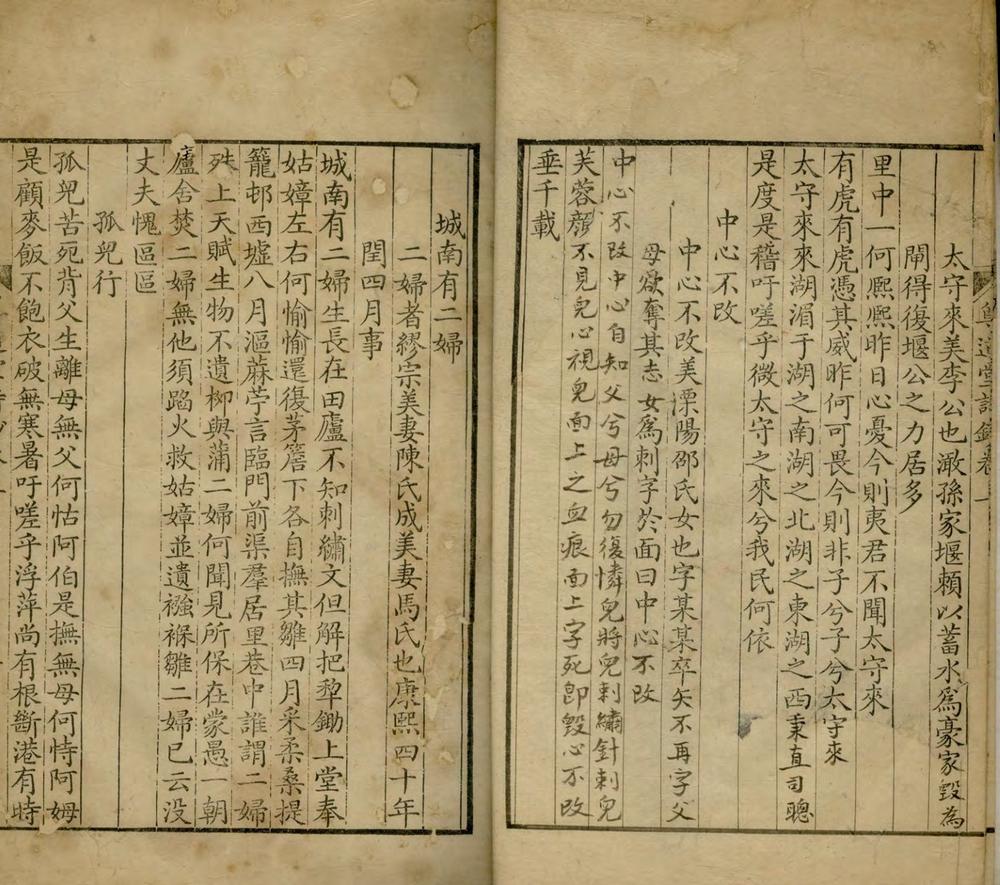 太守來美李公也澉孫家堰賴以蓄水爲豪家毀為
閘得復堰公之力居多
里中一何熙熙昨日心憂今則夷君不聞太守來
有虎有虎憑其威昨何可畏今則非子兮子兮太守來
太守來來湖湄于湖之南湖之北湖之東湖之西秉直司聰
是度是稽吁嗟乎微太守之來兮我民何依
中心不改
中心不改美溧陽邵氏女也字某某卒矢不再字父
母欲奪其志女爲刺字於面曰中心不改
中心不改中心自知父兮母兮勿復憐兒將兒刺繡針刺兒
芙蓉顏不見兒心視兒面上之血痕面上字死卽毀心不改
垂千載
城南有二婦
二婦者繆宗美妻陳氏成美妻馬氏也康熙四十年
閏四月事
城南有二婦生長在田廬不知刺繡文但解把犂鋤上堂奉
姑嫜左右何愉愉還復茅簷下各自撫其雛四月采柔桑提
籠邨西墟八月漚蔴苧言臨門前渠羣居里巷中誰謂二婦
殊上天賦生物不遺柳與蒲二婦何聞見所保在蒙愚一朝
廬舍焚二婦無他須蹈火救姑嫜並遺襁褓雛二婦已云没
丈夫愧區區
孤兒行
孤兒苦死背父生離母無父何怙阿伯是撫無母何恃阿姆
是顧麥飯不飽衣破無寒暑吁嗟乎浮萍尚有根斷港有時